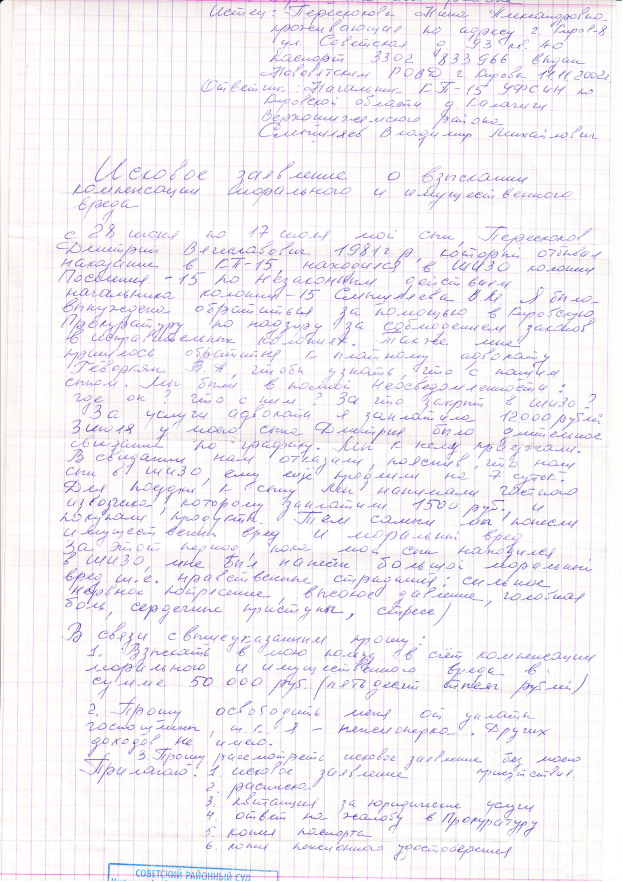 Истец: Перескокова Нина Александровна
проживающая по адресу г. Киров-8
ул. Советская д 93 кв. 40
паспорт 3302 833966 выдан
Нововятским РОВД г Кирова 14.11.2002г.
Ответчик: Начальник КП-15 УФСИН по
Кировской области д Калачиги
Верхошижемского района
Смышляев Владимир Михайлович
Исковое заявление о взыскании
компенсации морального и имущественного
вреда
с 28 июня по 17 июля мой сын, Перескоков
Дмитрий Вячеславович 1981 г р, который отбывал
наказание в КП-15, находился в ШИЗО колонии
Поселения -15 по незаконным действиям
начальника колонии-15 Смышляева В.М. Я была
вынуждена обратиться за помощью в Кировскую
Прокуратуру по надзору за соблюдением законов
в исправительных колониях. Также мне
пришлось обратиться к платному адвокату
Геворкян В А, чтобы узнать, что с нашим
сыном. Мы были в полной неосведомленности:
где он? что с ним? За что закрыт в ШИЗО?
За услуги адвоката я заплатила 12000 рублей
3 июля у моего сына Дмитрия было длительное
свидание по графику. Мы к нему приезжали.
В свидании нам отказали, пояснив, что наш
сын в ШИЗО, ему ещё продлили на 7 суток.
Для поездки к сыну мы нанимали частного
извозчика, которому заплатили 1500 руб., и
покупали продукты. Тем самым мы понесли
имущественный вред и моральный вред
За этот период пока мой сын находился
в ШИЗО, мне был нанесен большой моральный
вред, т.е. нравственные страдания: сильное
нервное потрясение, высокое давление, головная
боль, сердечные приступы, стресс)
В связи с вышеуказанным прошу:
1. Взыскать в мою пользу в счёт компенсации
морального и имущественного вреда в
сумме 50 000 руб. (пятьдесят тысяч рублей)
2. Прошу освободить меня от уплаты
госпошлины, т.к. я - пенсионерка. Других
доходов не имею.
3. Прошу рассмотреть исковое заявление без моего
присутствия.
Прилагаю: 1. исковое заявление
2. расписка
3. квитанция за юридические услуги
4. ответ на жалобу в Прокуратуру
5. копия паспорта
6. копия пенсионного удостоверения
СОВЕТСКИЙ РАЙОННЫЙ СУД